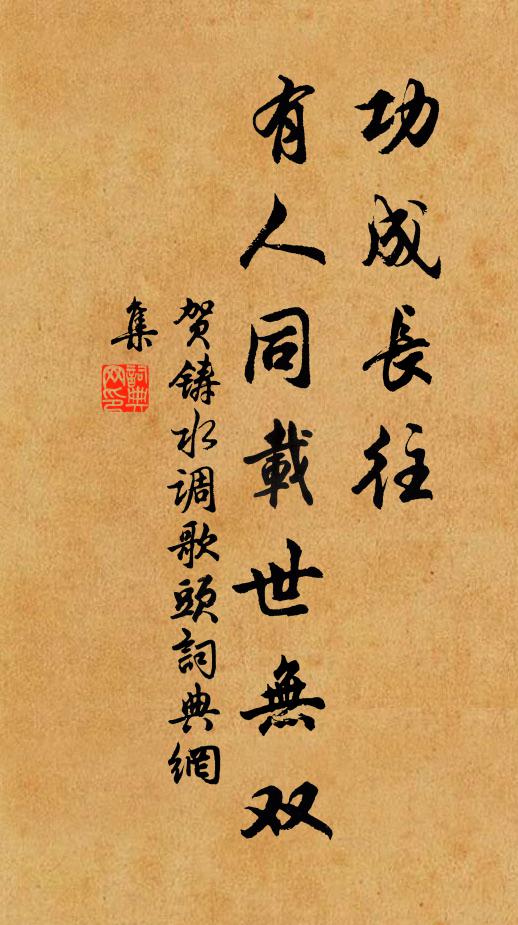 功成長往
有人同載世無双
贺鑄水调歌頭詞典網
集
詞典网印